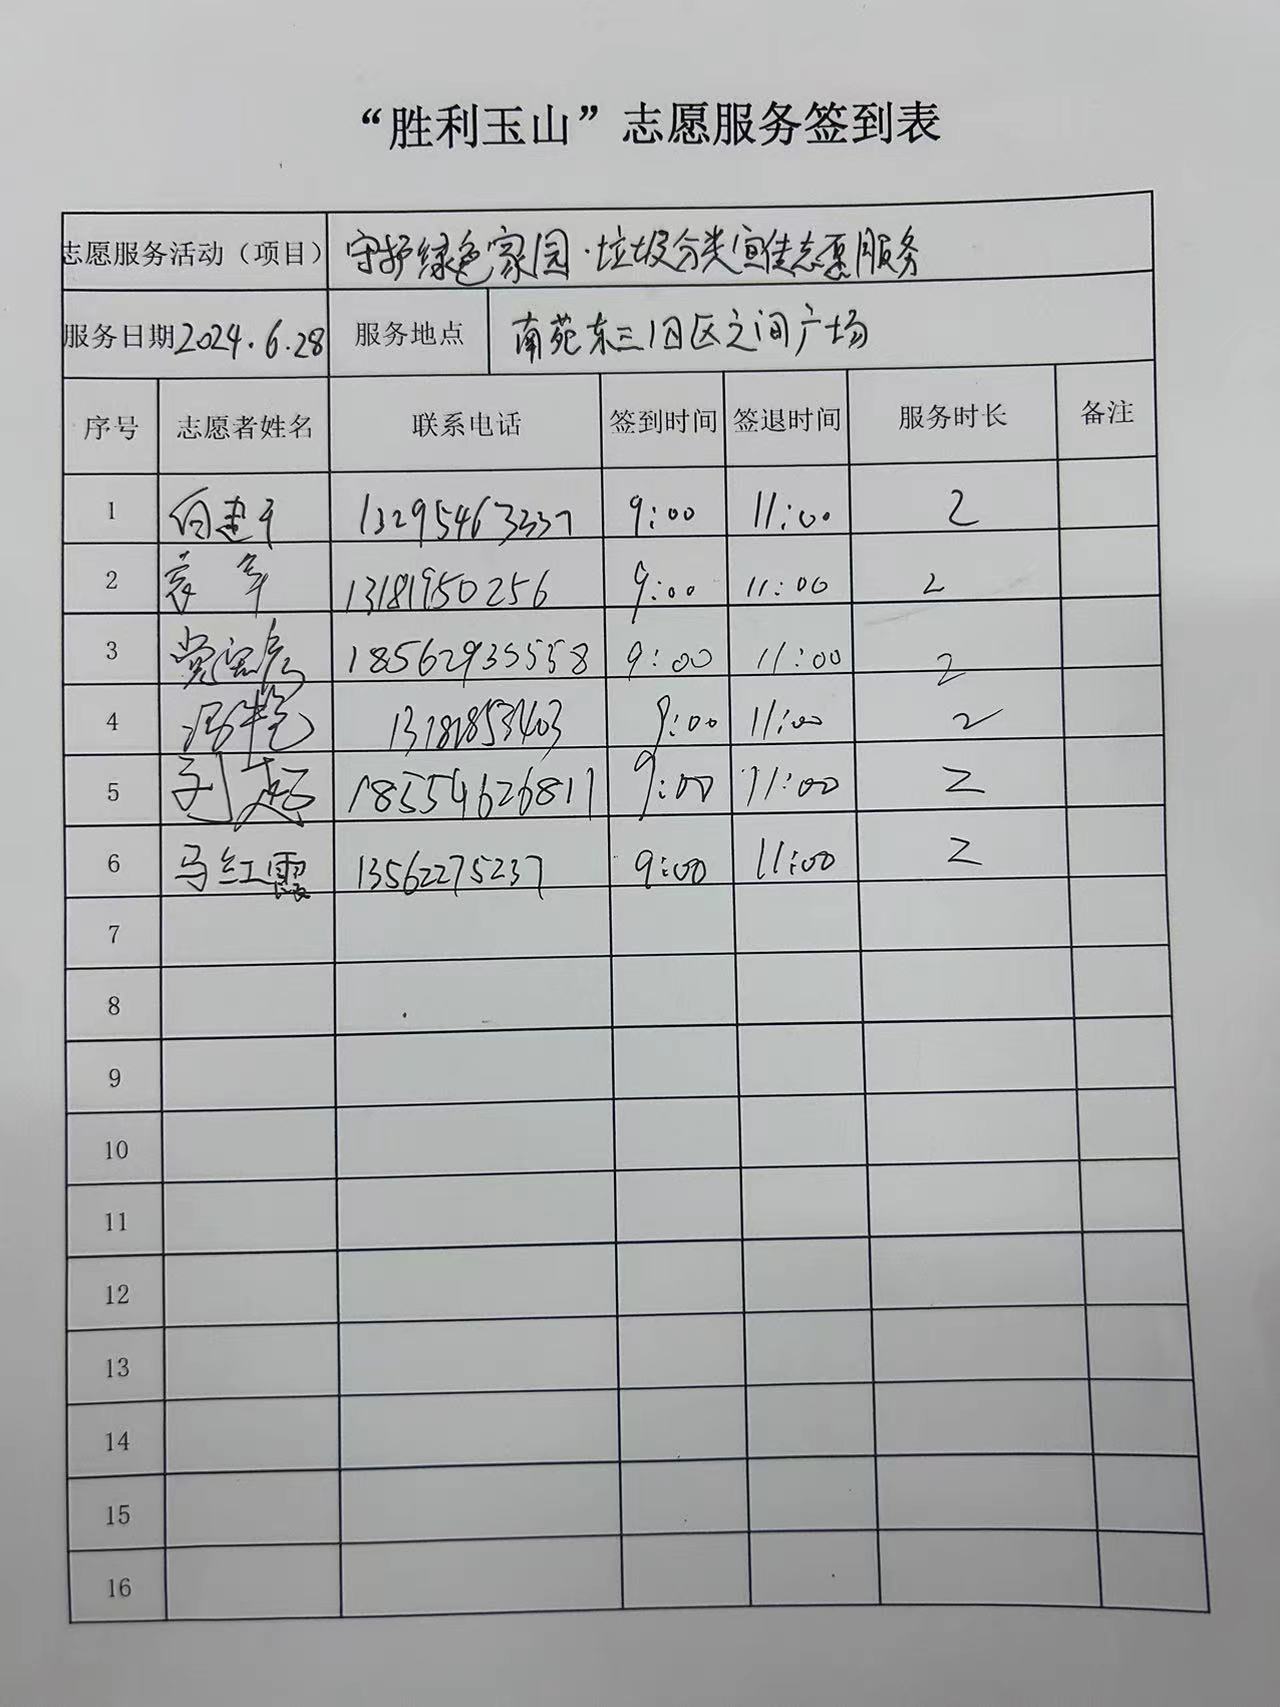 “胜利玉山”志愿服务签到表
志愿服务活动（项目） 守护绿色家园·垃圾分类宣传志愿服务
服务日期 2024.6.28 服务地点 南苑东三旧区之间广场
序号 志愿者姓名 联系电话 签到时间 签退时间 服务时长 备注
1 13295463337 9:00 11:00 2
2 13181950256 9:00 11:00 2
3 18562935558 9:00 11:00 2
4 13181853403 9:00 11:00 2
5 18554626811 9:00 11:00 2
6 马红霞 13562275237 9:00 11:00 2
7
8
9
10
11
12
13
14
15
16